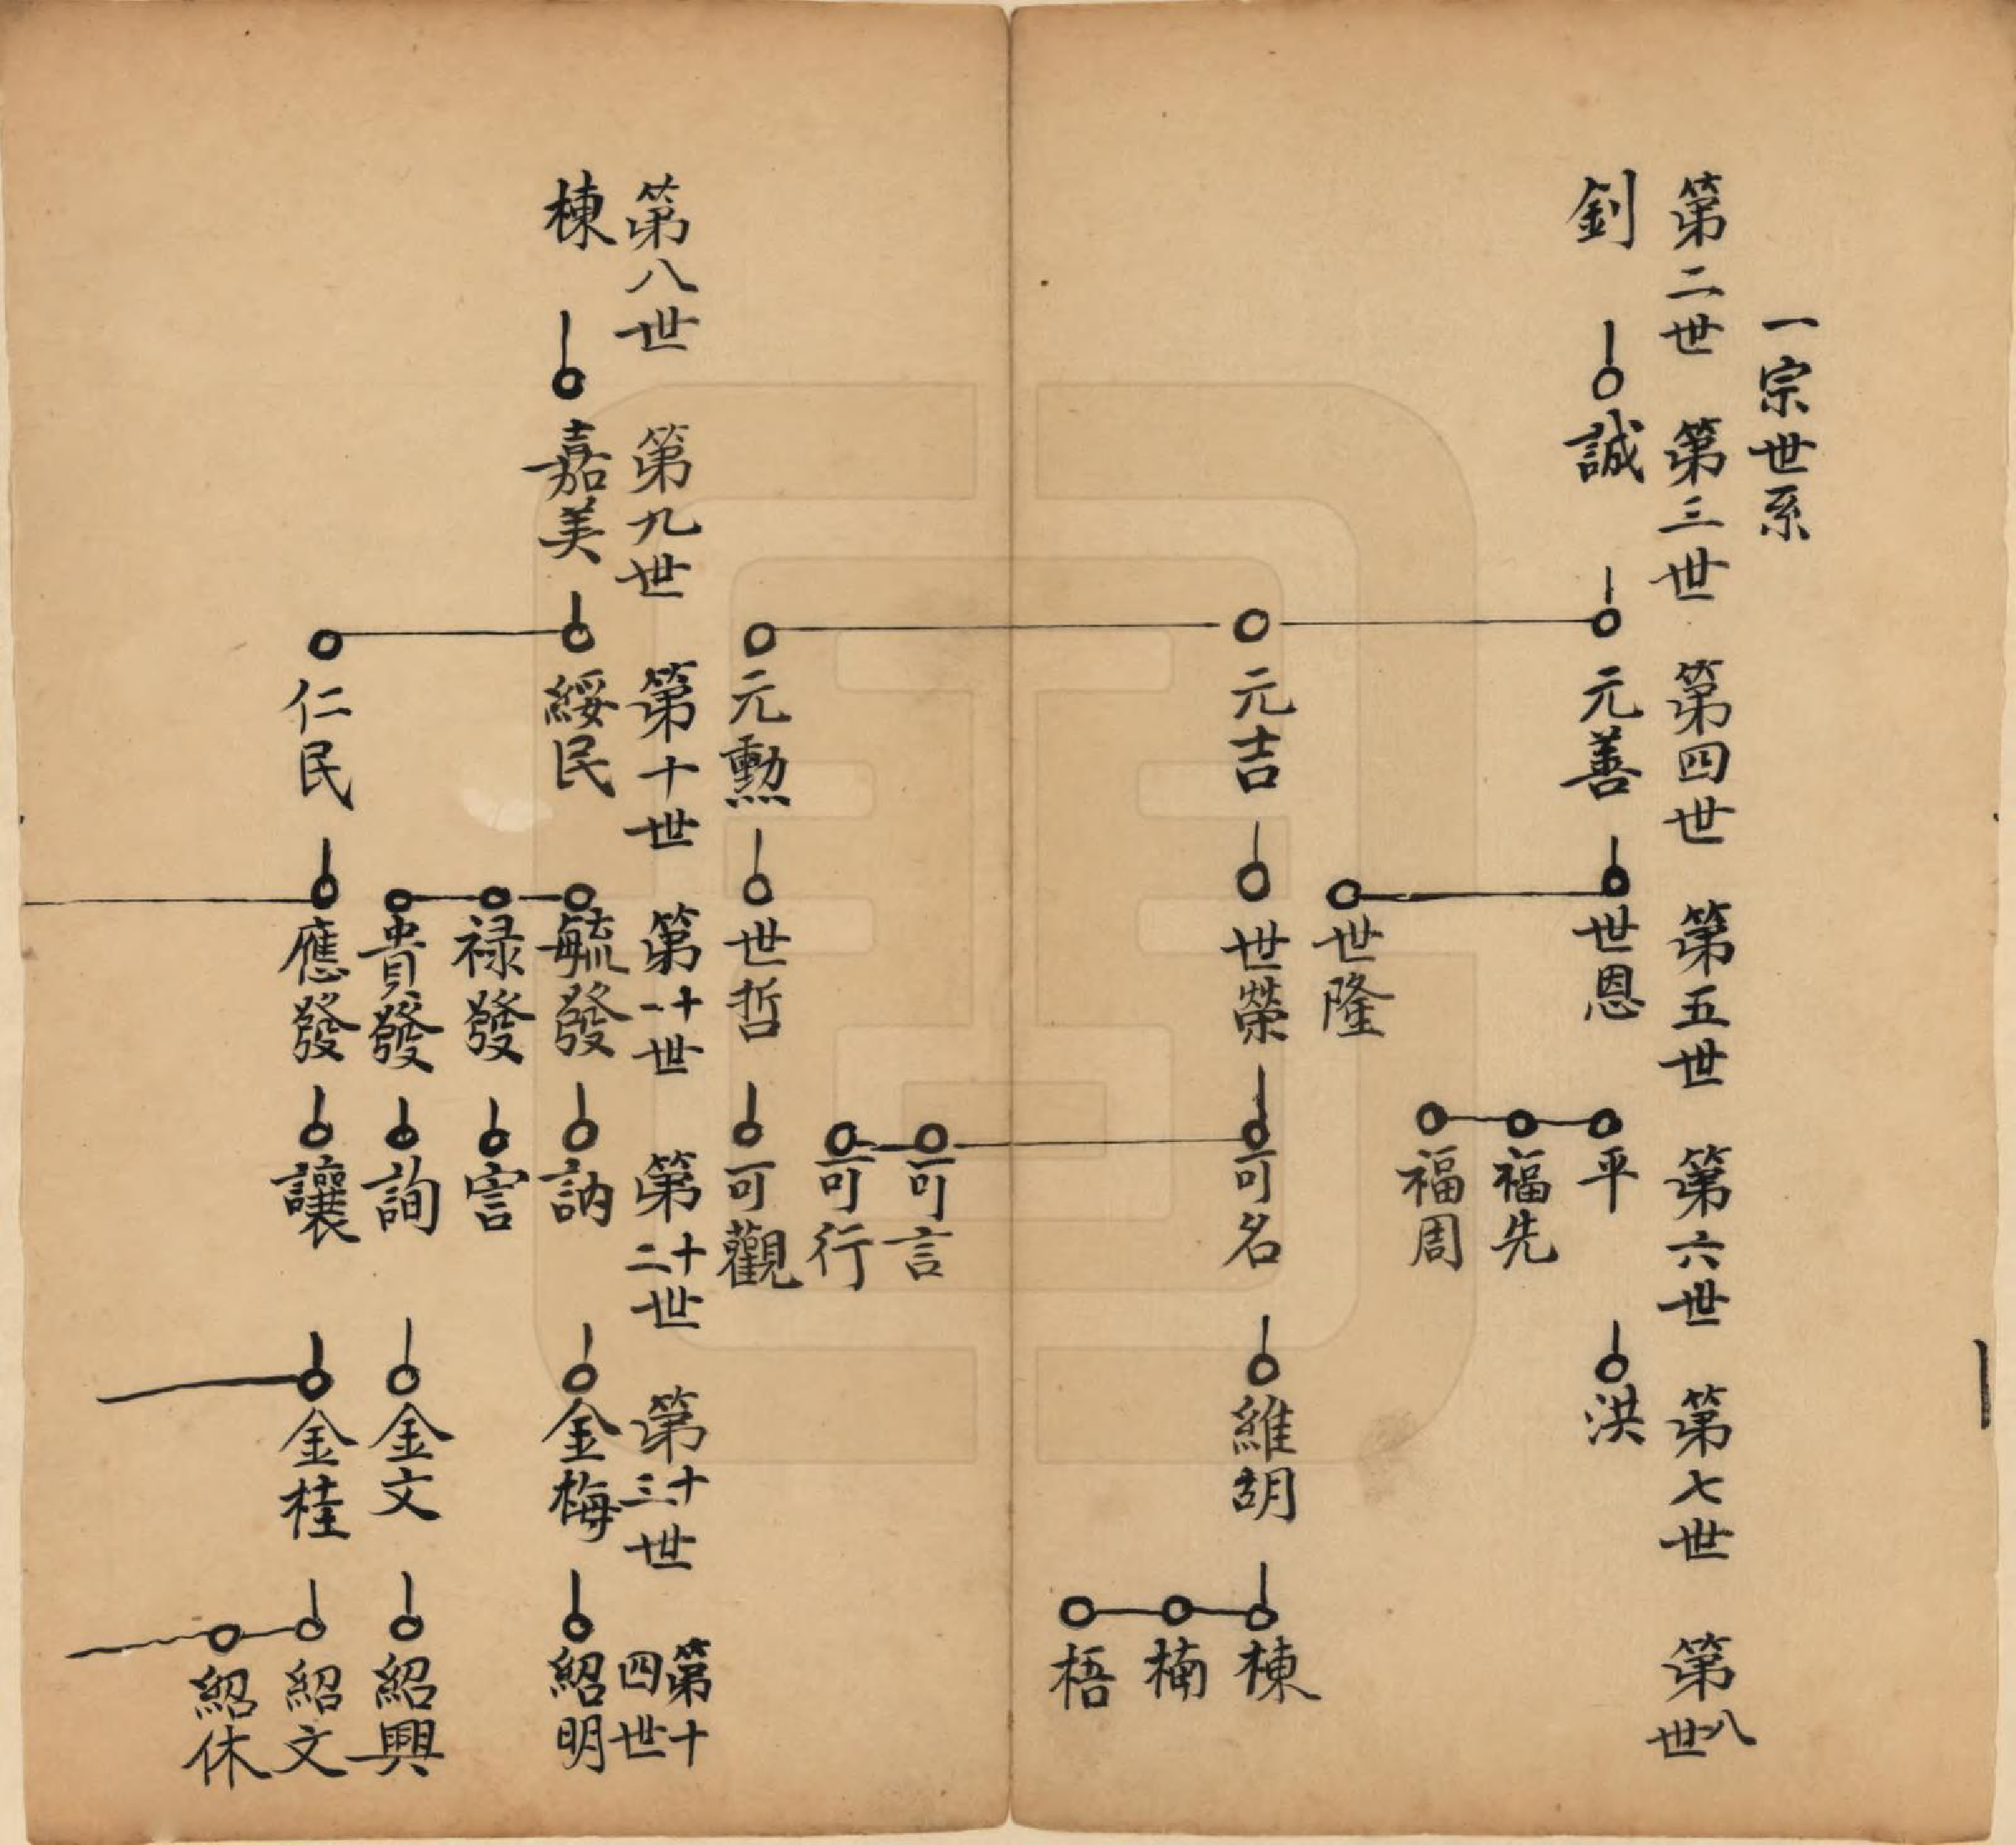 一宗世系
第二世 第三世 第四世 第五世 第六世 第七世 第八世
釗 誠 元善 世恩 平 洪
福先
福周
世隆
元吉 世榮 可名 維胡 棟
楠
梧
可言
可行
元勲 世哲 可觀
第八世 第九世 第十世 第十一世 第十二世 第十三世 第十四世
棟 嘉美 綏民 毓發 訥 金梅 紹明
禄發 害
貴發 詢 金文 紹興
仁民 應發 讓 金桂 紹文
紹休